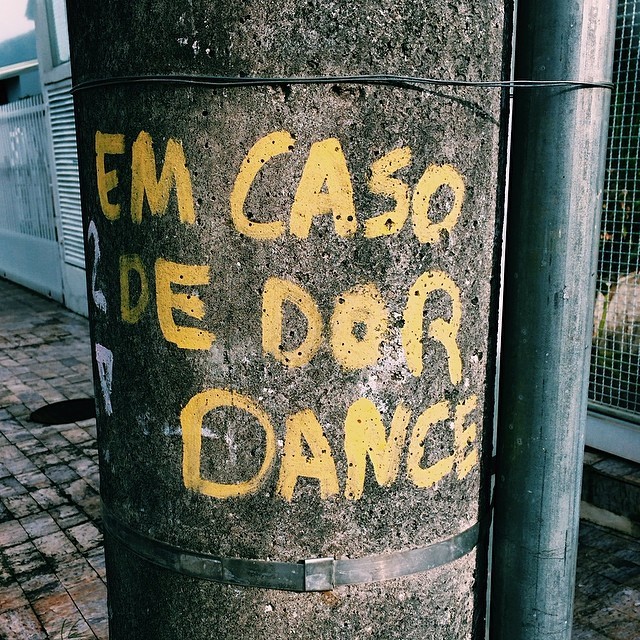 EM CASO
DE DOR
DANCE